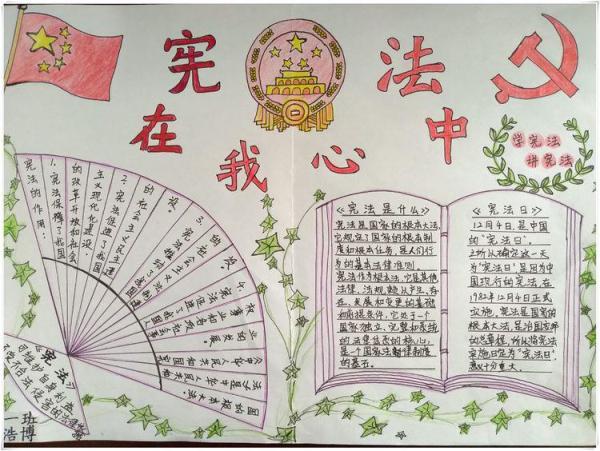 宪法
在我心中
学宪法
讲宪法
宪法的作用：
1. 宪法保障了我国
的改革开放和社会
主义现代化建设；
2. 宪法促进了我国
的社会主义民主建
设；
3. 宪法推动了我国
的社会主义法制
建设。
4. 宪法促进了我国人
权事业和各项社会事
业的发展。
《中华人民共和国宪
法》是中华人民共和
国的根本大法
《宪法》
一班
浩博
《宪法是什么》
宪法是国家的根本大法，
它规定了国家的根本制
度和根本任务，是人们行
为的基本法律准则。
宪法作为根本法，它是其他
法律、法规赖以产生、存
在、发展和变更的基础
和前提条件，它处于一个
国家独立、完整和系统
的法律体系的核心，
是一个国家法律制度
的基石。
《宪法日》
12月4日，是中国
的“宪法日”。
之所以确定这一天
为“宪法日”，是因为中
国现行的宪法，在
1982年12月4日正式
实施。宪法是国家的
根本大法，是治国安邦
的总章程，所以将宪法
实施日定为“宪法日”，
意义十分重大。